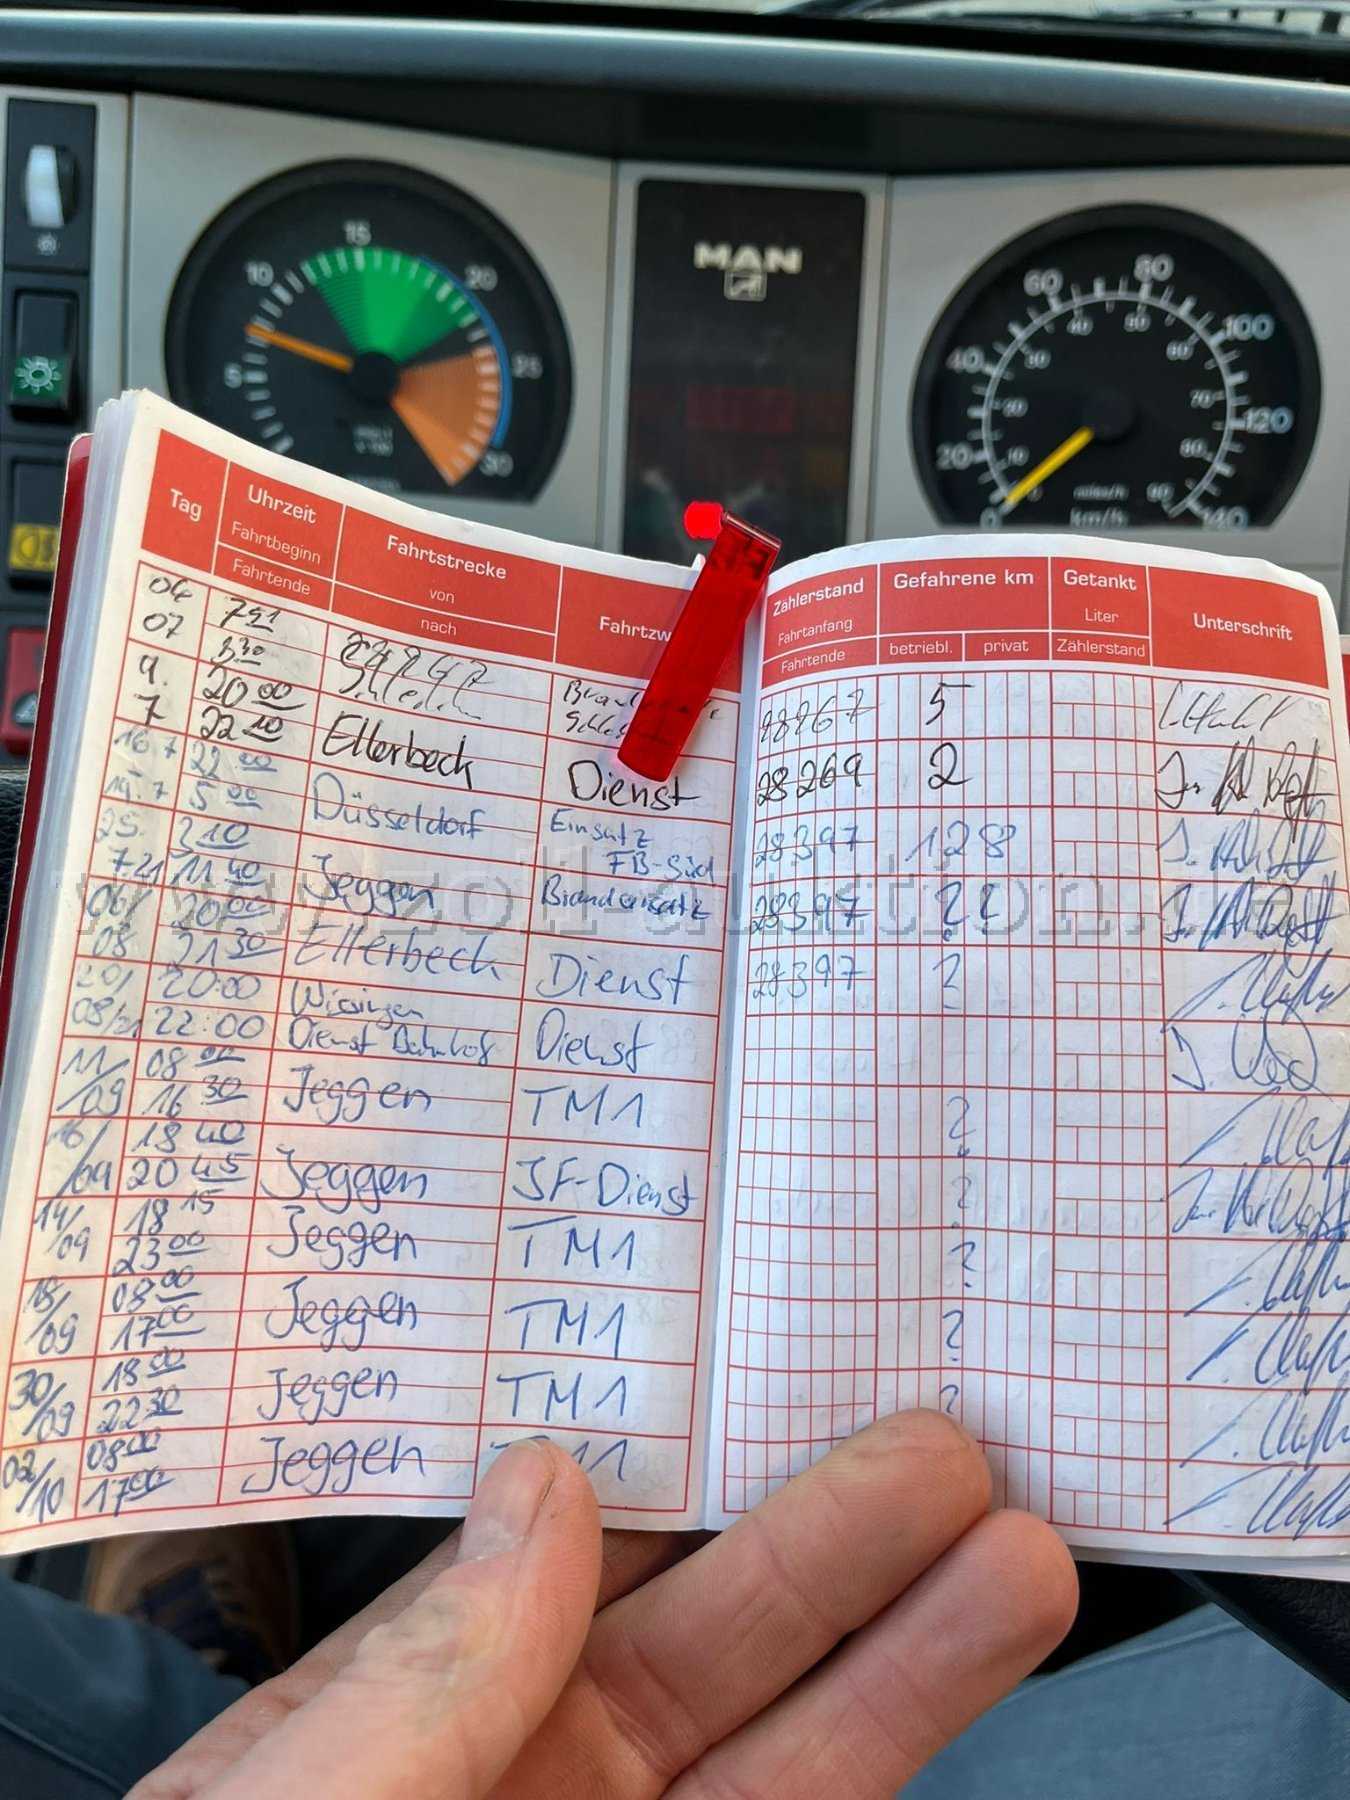 15
10
20
5
25
30
MAN
60
80
40
100
20
120
0
140
40
50
30
60
20
70
10
80
90
miles/h
km/h
Tag
Uhrzeit
Fahrtbeginn
Fahrtende
Fahrtstrecke
von
nach
Fahrtzw
Zählerstand
Fahrtanfang
Fahrtende
Gefahrene km
betriebl. privat
Getankt
Liter
Zählerstand
Unterschrift
06 7
07 8 30 5
9. 20 00
7 22 10 Ellerbeck Dienst 28269 2
16.7 22 00
19.7 5 00 Düsseldorf Einsatz FB-Süd 28397 128
25. 3 10
7.21 11 40 Jeggen Brandeinsatz 28397 ??
06/ 20 00
08 21 30 Ellerbeck Dienst 28397 ?
20/ 20:00 Wissingen
08/21 22:00 Dienst Bahnhof Dienst
11/ 08 00
/09 16 30 Jeggen TM1 ?
16/ 18 40
/09 20 45 Jeggen JF-Dienst ?
14/ 18 15
/09 23 00 Jeggen TM1 ?
18/ 08 00
/09 17 00 Jeggen TM1 ?
30/ 18 00
/09 22 30 Jeggen TM1 ?
02/ 08 00
/10 17 00 Jeggen
www.zoll-auktion.de